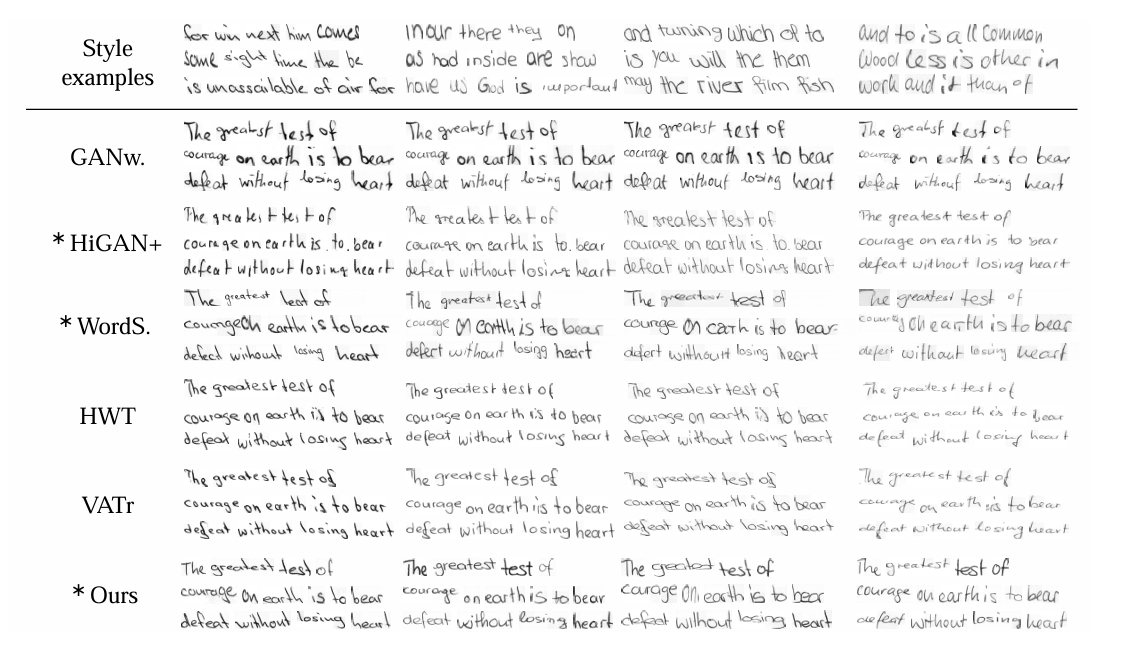 Style examples
for win next him comes inour there they on and turning which of to and to is all Common
some sight time the be as had inside are show is you will the them Wood Less is other in
is unassailable of air for have us God is important may the river film fish work and it than of
GANw.
The greatest test of The greatest test of The greatest test of The greatest test of
courage on earth is to bear courage on earth is to bear courage on earth is to bear courage on earth is to bear
defeat without losing heart defeat without losing heart defeat without losing heart defeat without losing heart
* HiGAN+
The greatest test of The greatest test of The greatest test of The greatest test of
courage on earth is. to. bear courage on earth is to. bear courage on earth is. to. bear courage on earth is to bear
defeat without losing heart defeat without losing heart defeat without losing heart defeat without losing heart
* WordS.
The greatest test of The greatest test of The greatest test of The greatest test of
courageon earth is to bear courage on earth is to bear courage on earth is to bear on earth is to bear
defect wihout losing heart defert withourt losing heart defert withhourt losing heart defert without losing heart
HWT
The greatest test of The greatest test of The greatest test of The greatest test of
courage on earth is to bear courage on earth is to bear courage on earth is to bear courage on earth is to bear
defeat without losing heart defeat without losing heart defeat without losing heart defeat without losing heart
VATr
The greatest test of The greatest test of The greatest test of The greatest test of
courage on earth is to bear courage on earth iis to bear courage on earth is to bear courage on earth iis to bear
defeat without losing heart defeat without losing heart defeat without losing heart defeat without losing heart
* Ours
The greatest test of The greatest test of The greatest test of The greatest test of
courage on earth is to bear courage on earth is to bear courage on earth is to bear courage on earth is to bear
defeat without losing heart defeat without losing heart defeat without losing heart defeat without losing heart